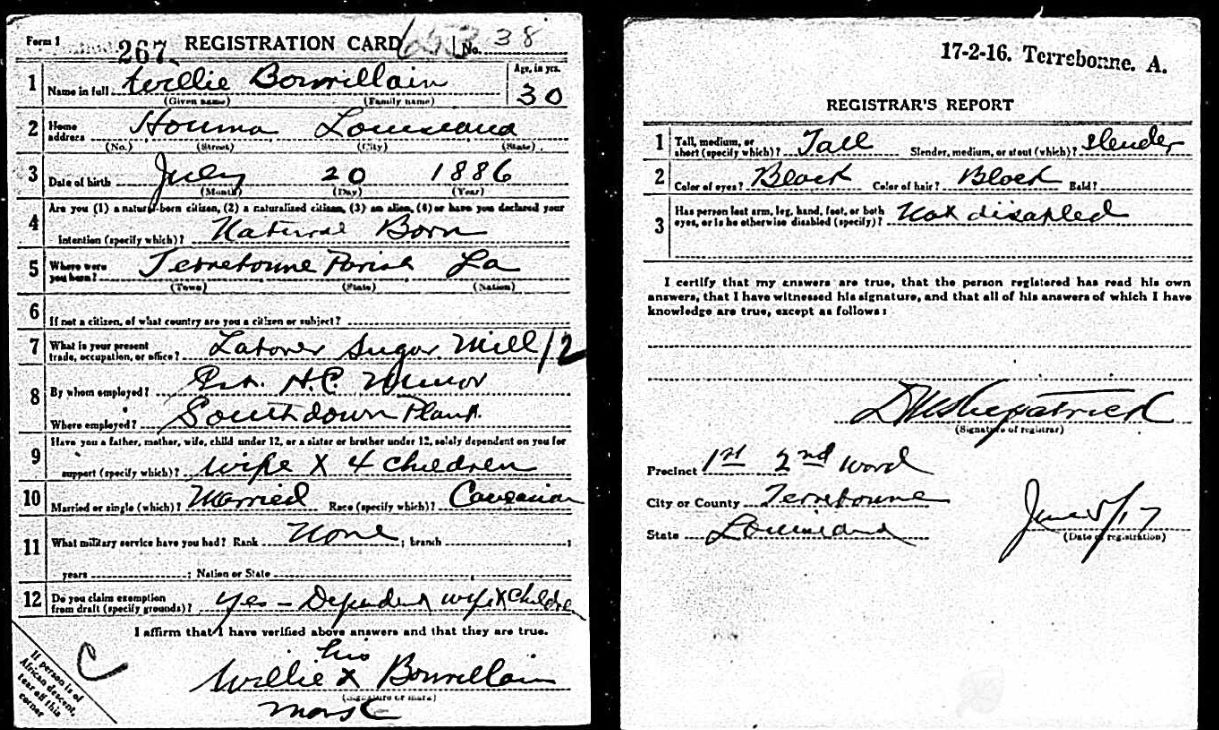 Form 1 267 REGISTRATION CARD No. 38
1 Name in full Willie Bourvillain Age, in yrs. 30
(Given name) (Family name)
2 Home address Houma Louisiana
(No.) (Street) (City) (State)
3 Date of birth July 20 1886
(Month) (Day) (Year)
4 Are you (1) a natural-born citizen, (2) a naturalized citizen, (3) an alien, (4) or have you declared your
intention (specify which)? Natural Born
5 Where were you born? Terrebonne Parish La
(Town) (State) (Nation)
6 If not a citizen, of what country are you a citizen or subject?
7 What is your present trade, occupation, or office? Laborer Sugar Mill 12
8 By whom employed? Est. H.C. Minor
Where employed? Southdown Plant.
9 Have you a father, mother, wife, child under 12, or a sister or brother under 12, solely dependent on you for
support (specify which)? wife X 4 children
10 Married or single (which)? Married Race (specify which)? Caucasian
11 What military service have you had? Rank None ; branch ;
years ; Nation or State
12 Do you claim exemption from draft (specify grounds)? Yes - Dependent wife X Childre
I affirm that I have verified above answers and that they are true.
C
his
Willie X Bourvillain
(Signature or mark)
mark
If person is of African descent, tear off this corner
17-2-16. Terrebonne. A.
REGISTRAR'S REPORT
1 Tall, medium, or short (specify which)? Tall Slender, medium, or stout (which)? Slender
2 Color of eyes? Black Color of hair? Black Bald?
3 Has person lost arm, leg, hand, foot, or both eyes, or is he otherwise disabled (specify)? Not disabled
I certify that my answers are true, that the person registered has read his own
answers, that I have witnessed his signature, and that all of his answers of which I have
knowledge are true, except as follows:
(Signature of registrar)
Precinct 1st 2nd Ward
City or County Terrebonne
State Louisiana
June 5/17
(Date of registration)